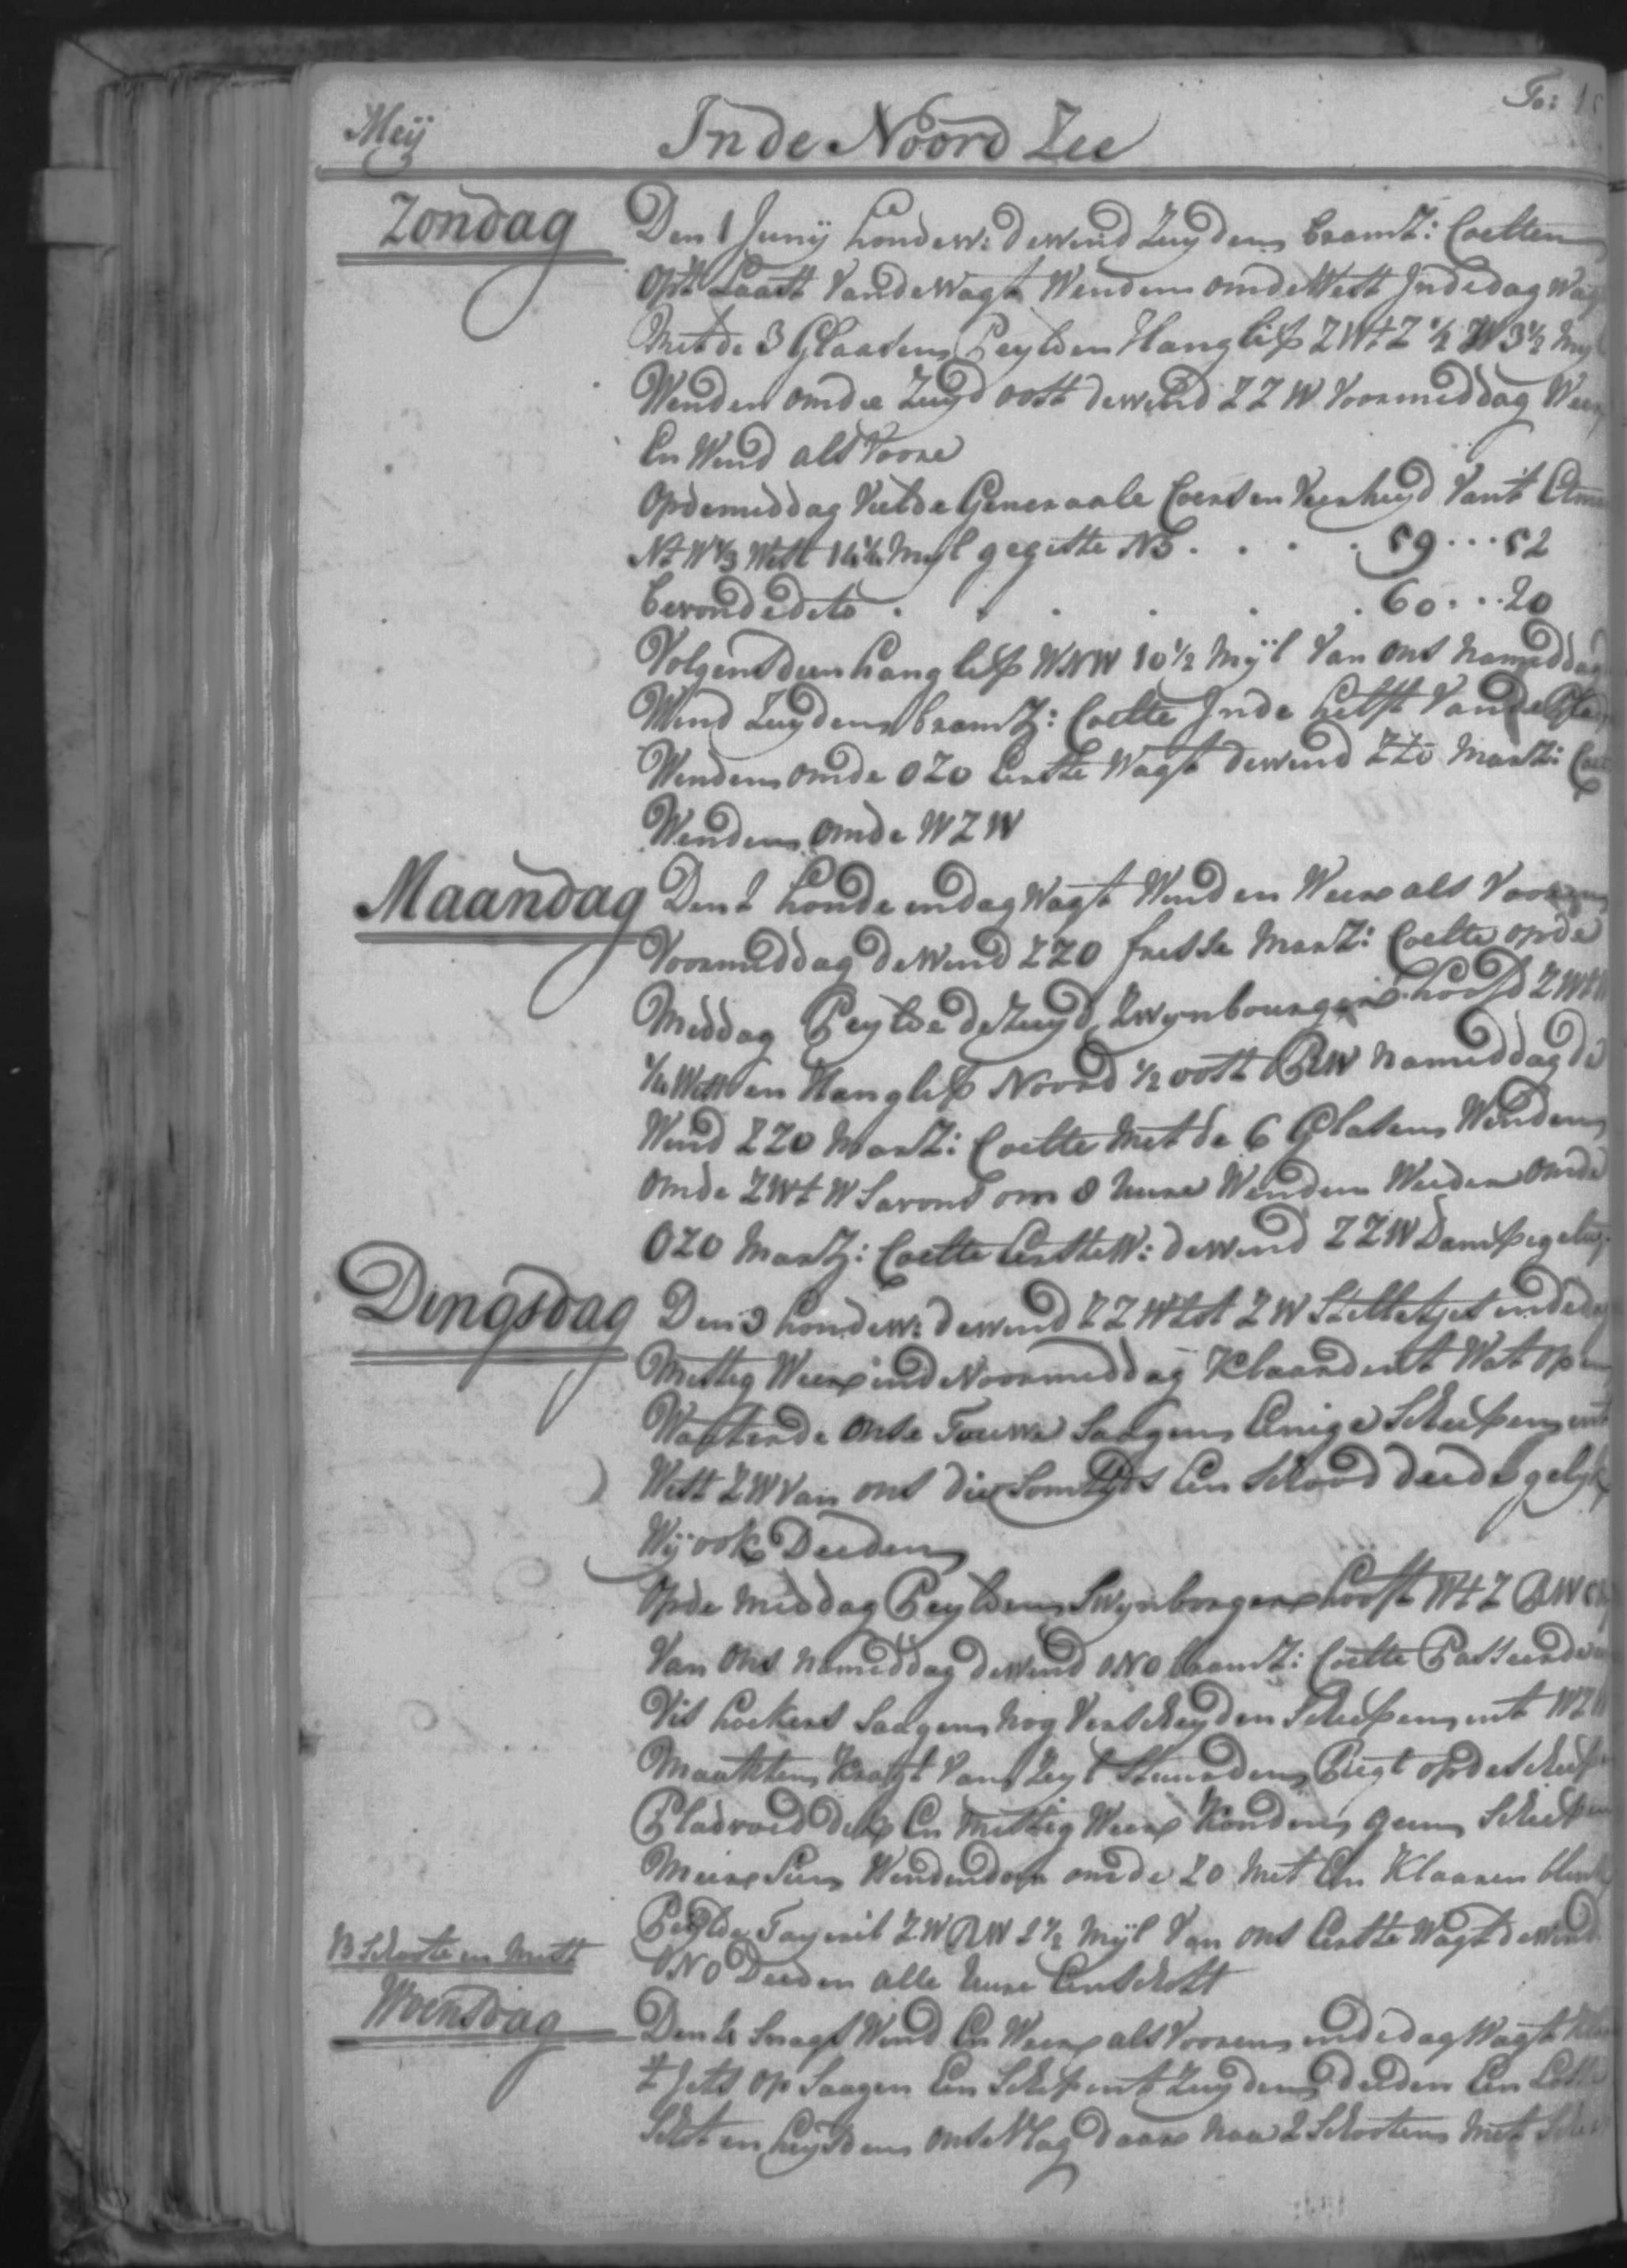 Meij
In de Noord Zee
Fo: 1
Zondag
Den 1 Junij honde w: de wind Zuydenₛ bramZ: Coelten
Op't Laast Vande Wagt Wenden om de West Jnde dag Wag
Met de 3 Glaasen Peylden Hanglip ZWtZ ½ W 3½ Myl
Wenden om de Zuyd oost de wind ZZW Voormiddag Weer
En Wind als Voore
Op de middag Vielde Generaale Coers en Veerheyd Van't Etm
NtW ⅓ West 14¼ Myl gegiste NB . . . . 59 . . . 52
bevonde dito . . . . . 60 . . . 20
Volgens deen hang lip WNW 10½ Mijl Van ons nameddag
Wind Zuyden bramZ: Coelte Jn de helft Vande
Wenden om de OZO Eerste Wagt de wind ZZO MarsZ: Coe
Wenden om de WZW
Maandag
Den 2 honde en dag Wagt Wind en Weer als Vooren
Voormiddag de Wind ZZO frisse MarsZ: Coelte op de
Middag Peylde de Zuyd Zwynbourger hoofd ZWt
¼ West en Hanglip Noord ½ oost RW nameddag de
Wind ZZO MarsZ: Coelte Met de 6 Glasen Wenden
om de ZWtW Savons om 8 uure Wenden Weeder om de
OZO MarsZ: Coelte Eerste W: de wind ZZW Dampige lug
Dingsdag
Den 3 honde w: de wind ZZW tot ZW Stilletjes en de da
Mistig Weer in de Voormiddag Klaarde 't Wat op en
Waaterde onse Touwe Saagen Eenige Scheepen int
West ZW Van ons die Somtyts Een Schood deede gelyk
Wij ook Deeden
Op de Middag Peylden Swynborger hooft WtZ RW
Van ons nameddag de wind ONO bramZ: Coelte Passeerde
Vis hoekers Saagen nog Verscheyden Scheepen int WZW
Maakten Kragt Van Zeyl Stuurden Regt op de scheep
Glad voed dik En Mistig Weer Konden geen Scheepen
Meer Sien Wenden doen om de ZO Met Een Klaaren blenk
Peylde Fayeril ZW RW 2½ Mijl Van ons Eerste Wagt de Wind
ONO Deeden alle uure Een Schott
13 Schoote in Mist
Woensdag
Den 4 Snags Wind En Weer als Vooren in de dag Wagt Kla
't Jets op Saagen Een Schip int Zuyden deeden Een Los
Schot en heysen onse Vlag daar naa 2 Schooten Met